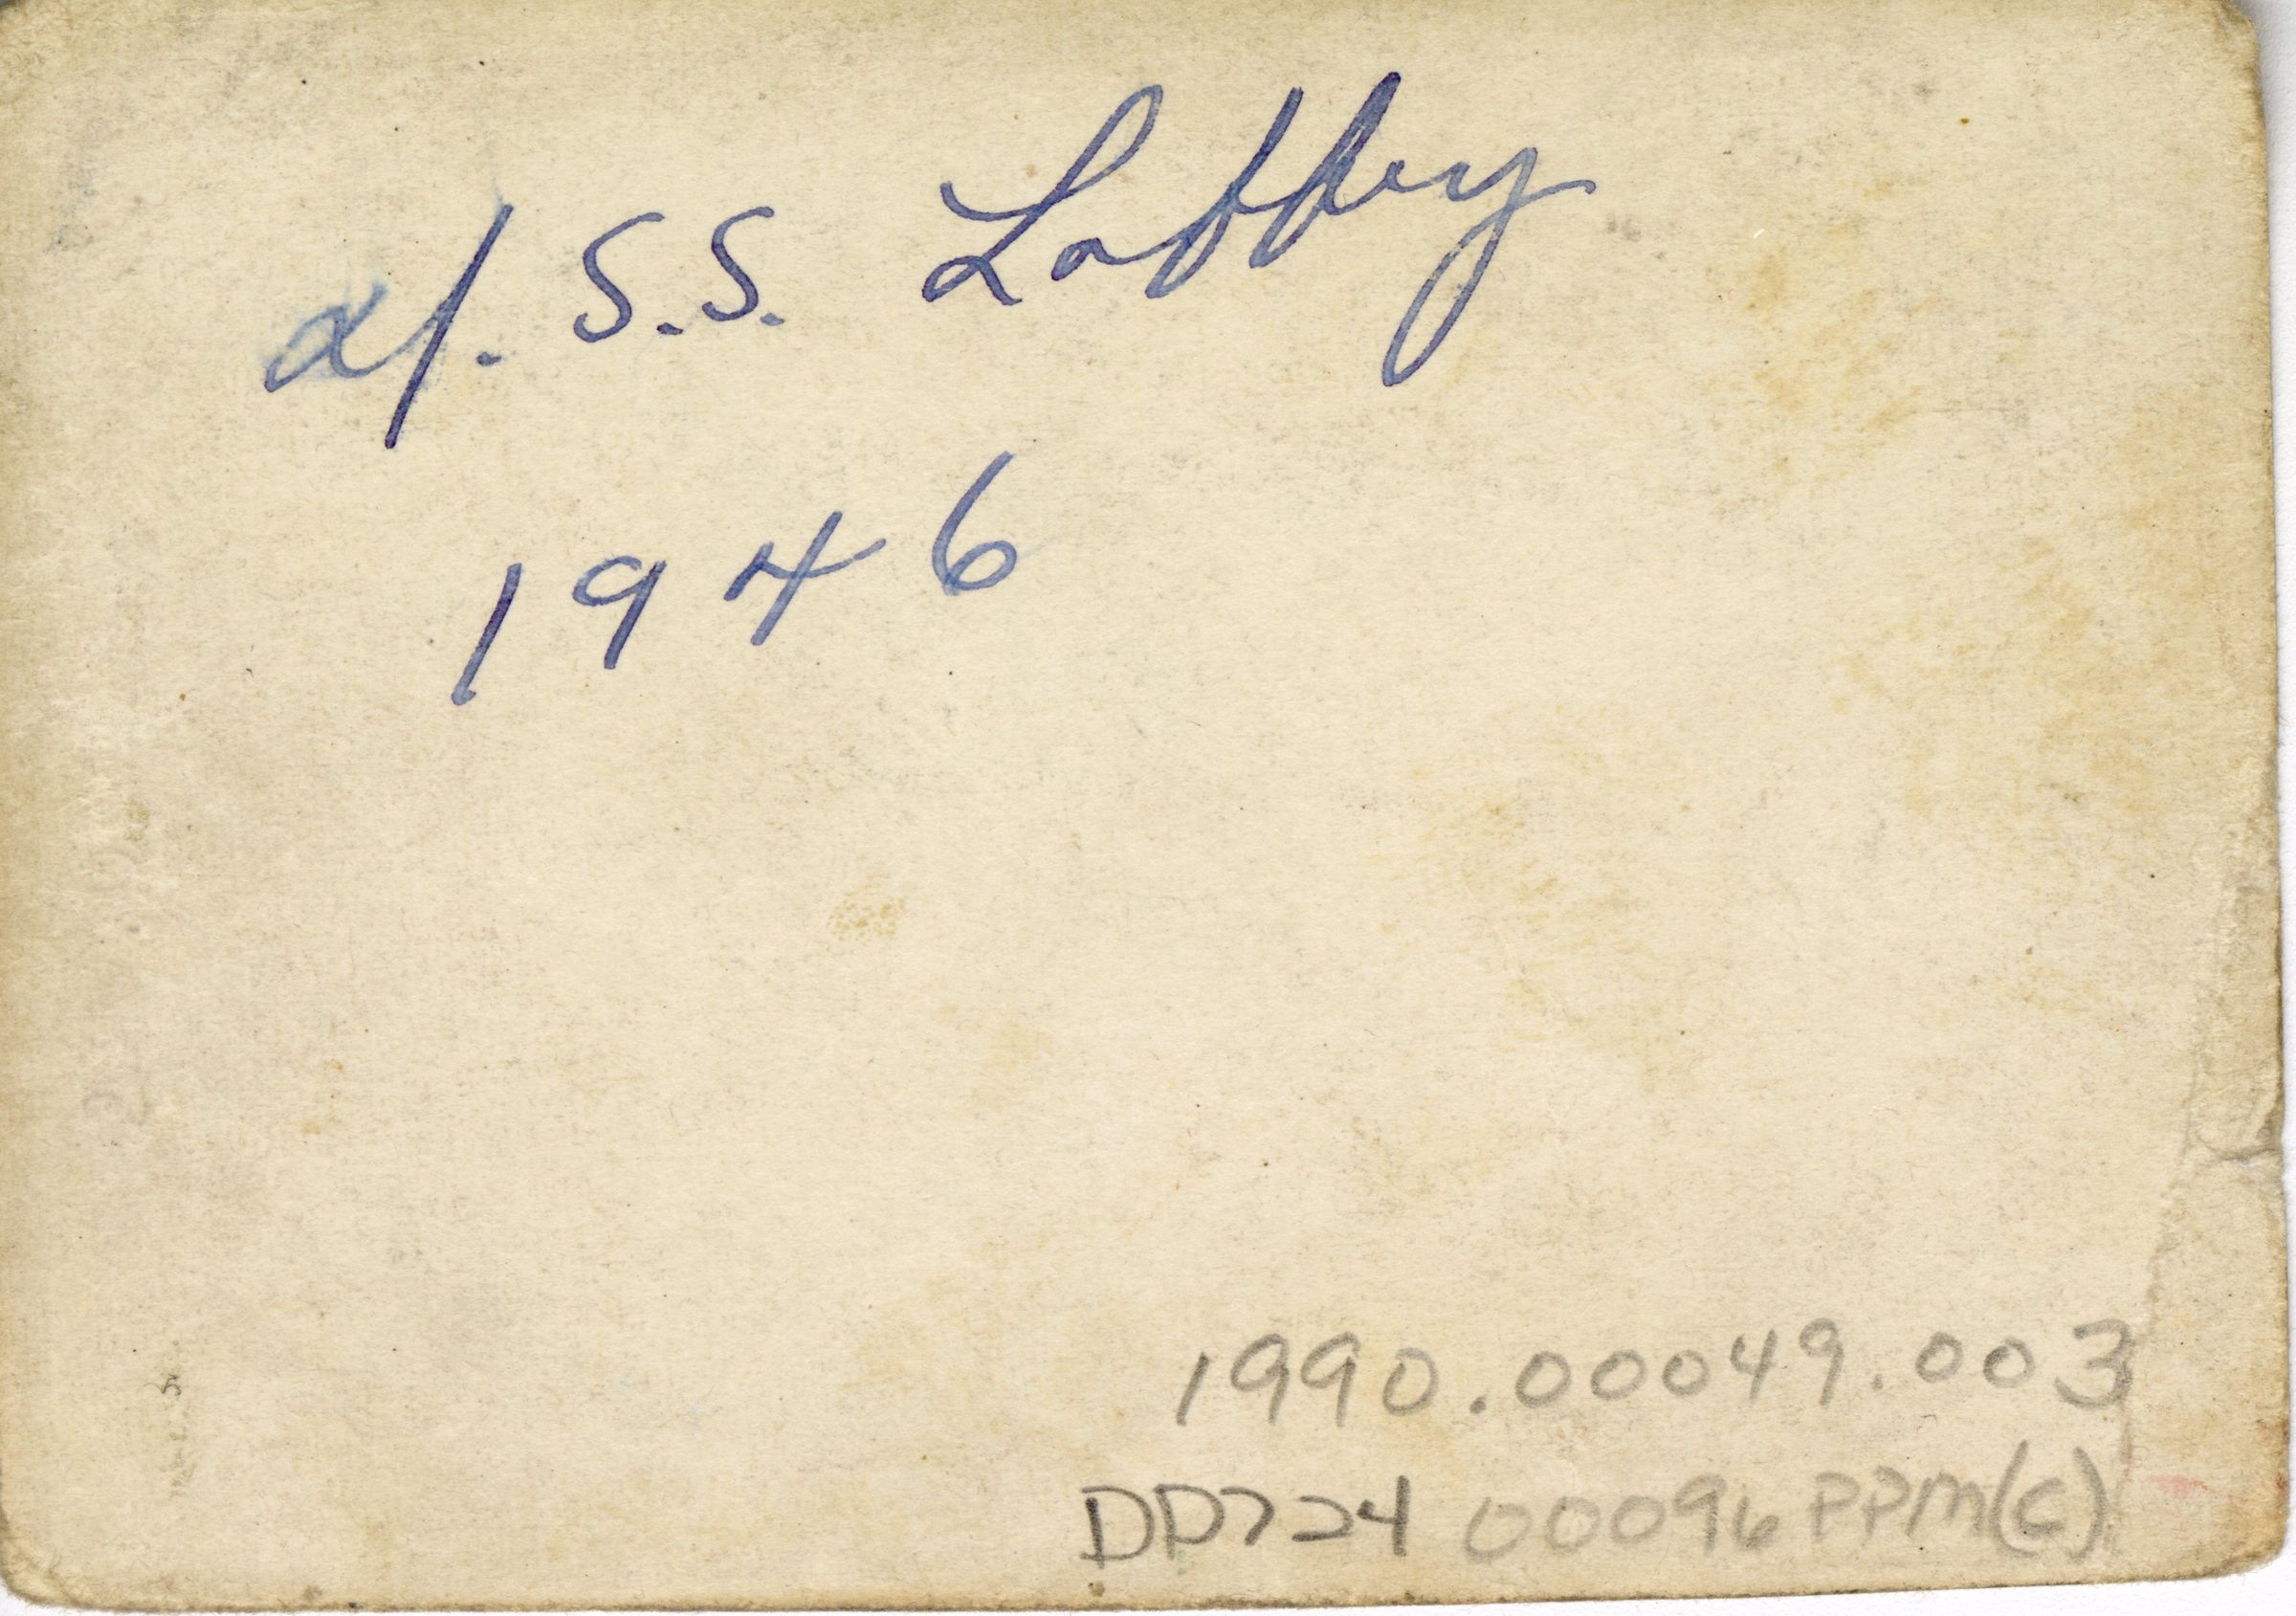 U.S.S. Laffey
1946
1990.00049.003
DD724 00096PPM(C)